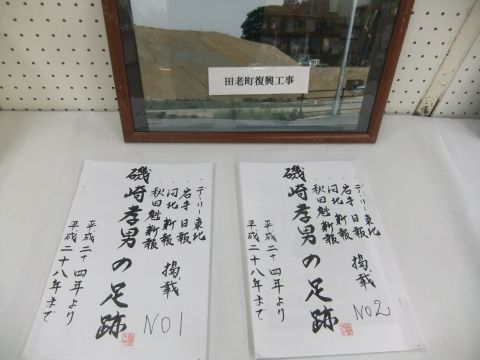 田老町復興工事
・デーリー東北
・岩手日報
・河北新報
・秋田魁新報
掲載
磯崎孝男の足跡
平成二十四年より
平成二十八年まで
NO1
・デーリー東北
・岩手日報
・河北新報
・秋田魁新報
掲載
磯崎孝男の足跡
平成二十四年より
平成二十八年まで
NO2